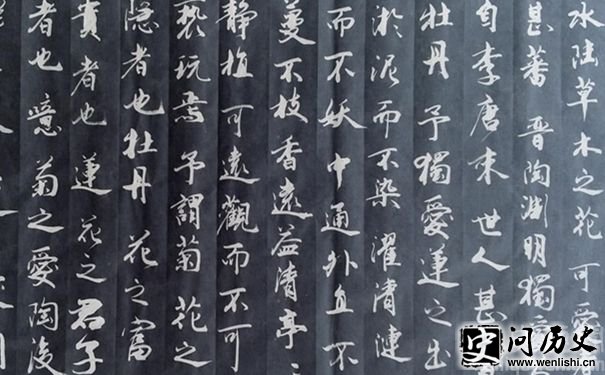 水陸草木之花可愛
甚蕃晋陶淵明獨
自李唐来世人甚
牡丹予獨愛蓮之出
淤泥而不染濯清漣
而不妖中通外直不
蔓不枝香遠益清亭
静植可遠觀而不可
褻玩焉予謂菊花之
隱者也牡丹花之富
貴者也蓮花之君子
者也噫菊之愛陶後
史 问历史
www.wenlishi.cn